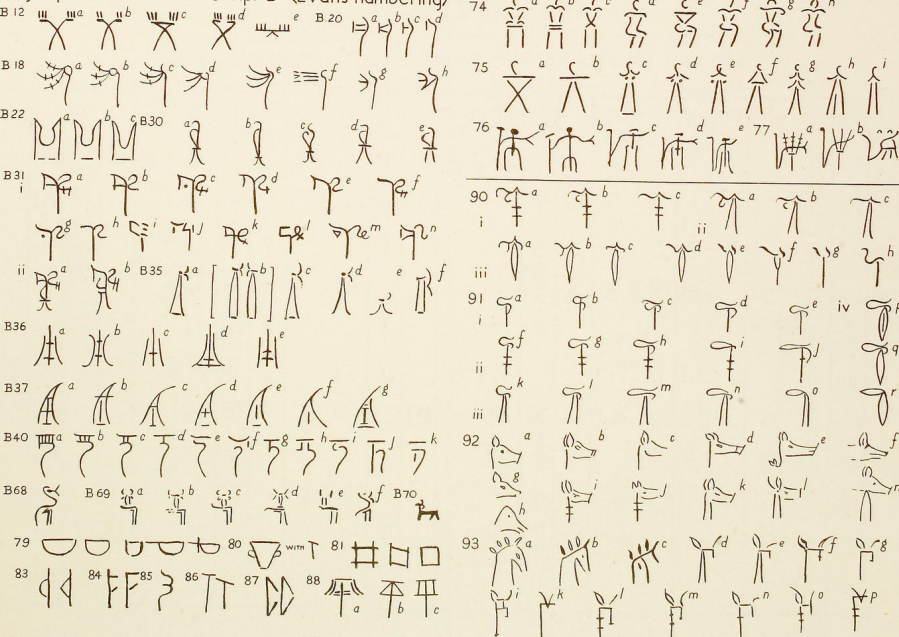 (Evans numbering)
B 12 a b c d e B.20 a b c d
B 18 a b c d e f g h
B 22 a b c B30 a b c d e
B31 i a b c d e f
g h i j k l m n
ii a b B35 a b c d e f
B36 a b c d e
B37 a b c d e f g
B40 a b c d e f g h i j k
B68 B 69 a b c d e f B70
79 80 WITH 81
83 84 85 86 87 88 a b c
74 a e f g h
75 a b c d e f g h i
76 a b c d e 77 a b c
90 i a b c ii a b c
iii a b c d e f g h
91 i a b c d e iv p
ii f g h i j q
iii k l m n o r
92 a b c d e f
g h i j k l n
93 a b c d e f g
i k l m n o p